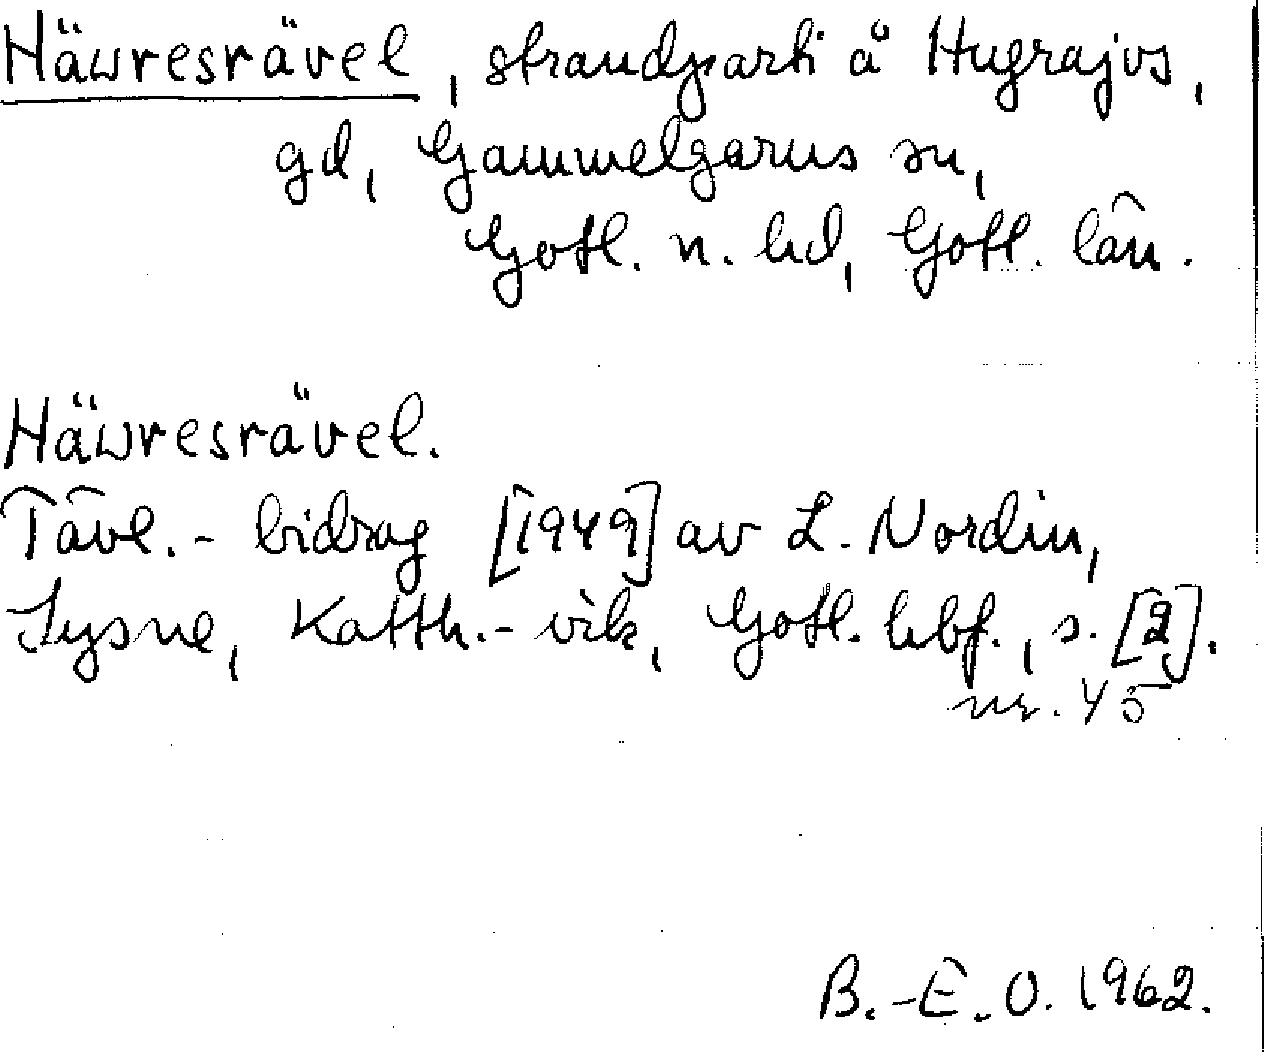 Häwresrävel, strandparti å Hugrajvs,
gd, Gammelgarns sn,
Gotl. n. hd, Gotl. län.
Häwresrävel.
Tävl.-bidrag [1949] av L. Nordin,
Sysne, Katth.-vik, Gotl. hbf., s. [2].
nr. 45
B.-E. O. 1962.